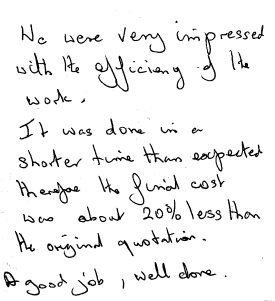 We were very impressed
with the efficiency of the
work.
It was done in a
shorter time than expected
therefore the final cost
was about 20% less than
the original quotation.
A good job, well done.